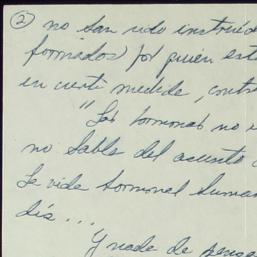 ② no han sido instruid
formados) por quien est
en cierta medida, contr
"Las hormonas no
no hable del asunto
La vida hormonal humana
día...
Y nada de pensa